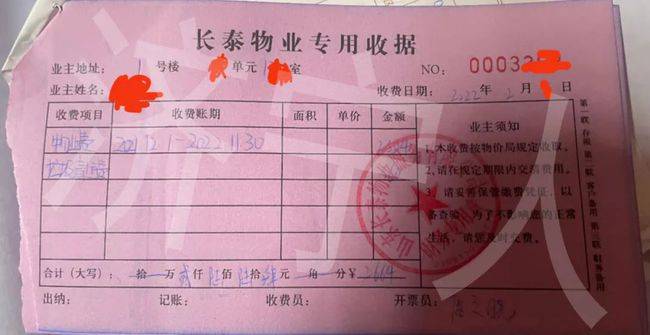 长泰物业专用收据
业主地址: 1 号楼 单元 1 室 NO: 0003
业主姓名: 收费日期: 2022 年 2 月 日
收费项目 收费账期 面积 单价 金额 业主须知
物业费 2021 12 1-2022 11.30
1.本收费按物价局规定收取。
2.请在规定期限内交清费用。
3.请妥善保管缴费凭证,以
备查验。为了不影响您的正常
生活,请您及时交费。
合计(大写): 拾 万 贰仟 陆佰 陆拾 肆元 角 分¥ 2664
出纳: 记账: 收费员: 开票员:
第一联存根 第二联客户备用 第三联财务备用
山东长泰物业
济宁人